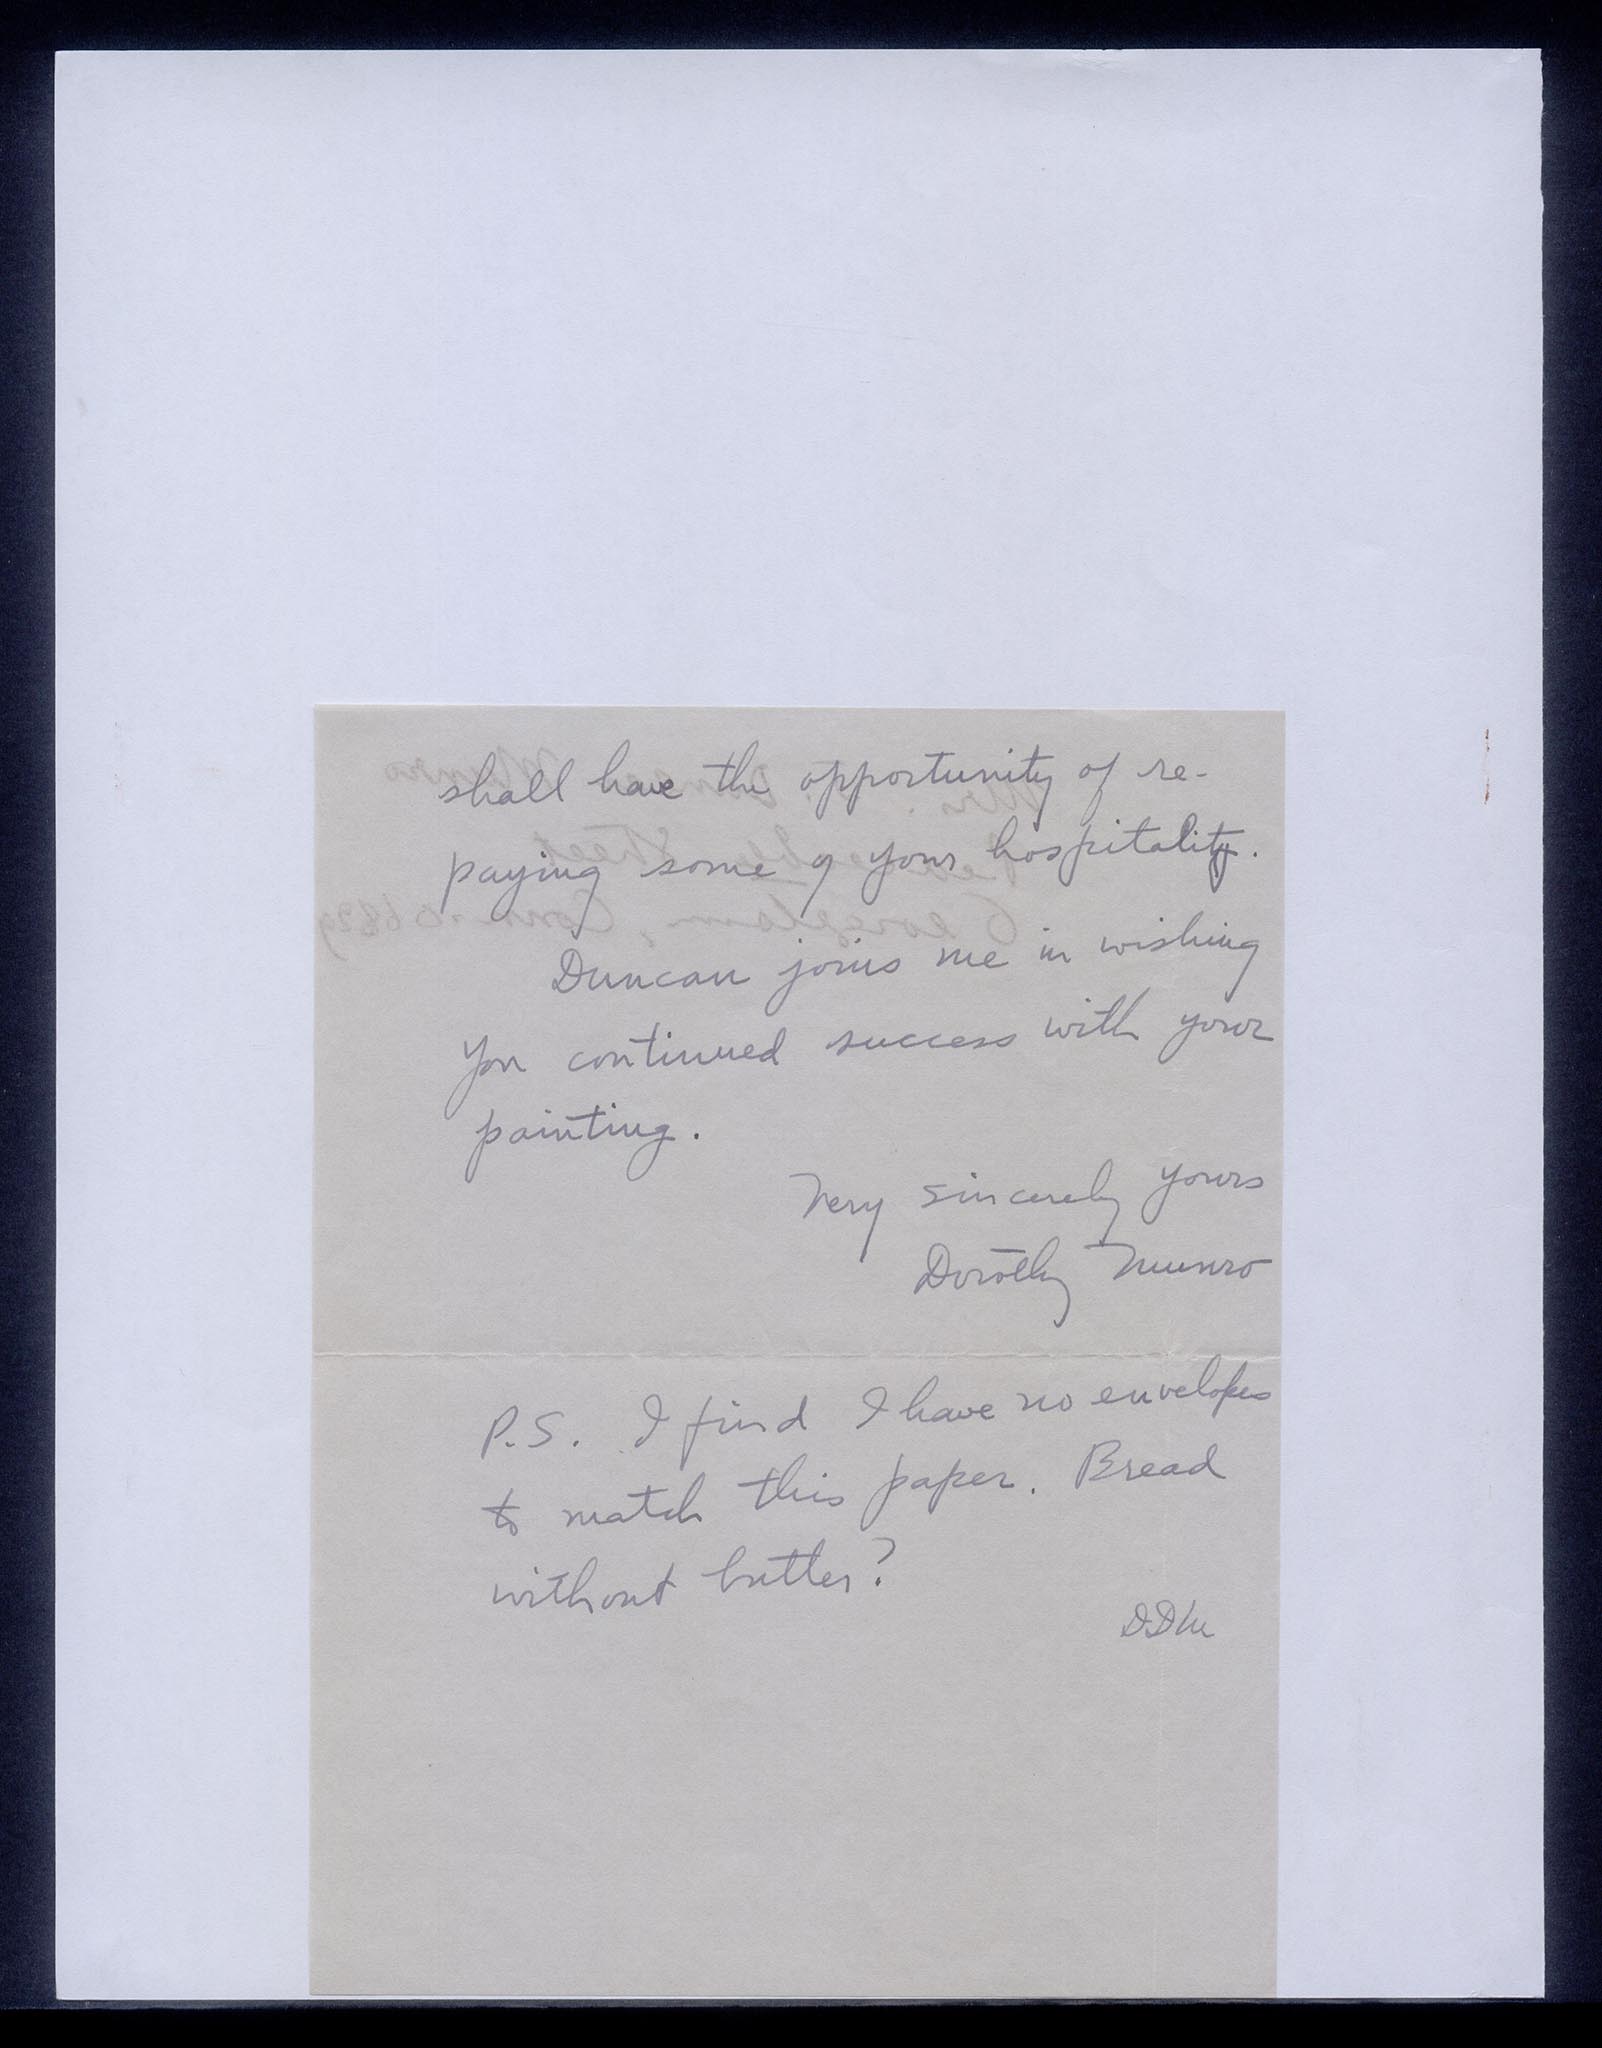 shall have the opportunity of re-
paying some of your hospitality.
Duncan joins me in wishing
you continued success with your
painting.
Very sincerely yours
Dorothy Munro
P.S. I find I have no envelopes
to match this paper. Bread
without butter?
DDM
Mrs. Duncan Munro
Street
Georgetown, Conn. 06829